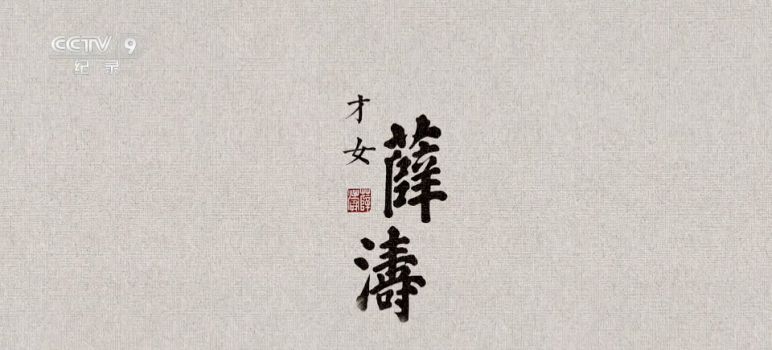 CCTV 9
纪录
才女
薛濤